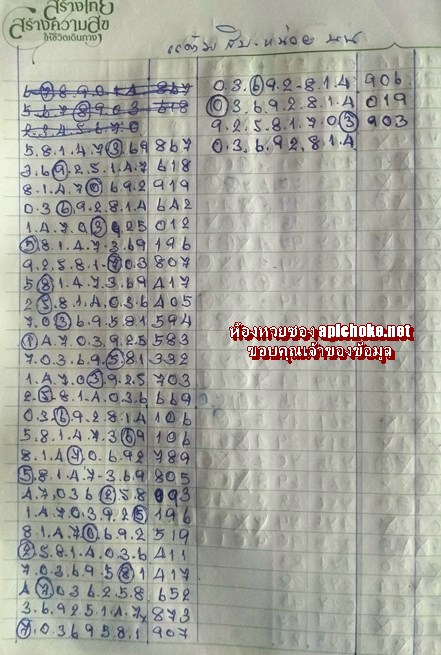 สร้างไทย
สร้างความสุข
ให้ชีวิตเดินทาง
แต้ม สิบ-หน่วย บน
6 7 8 9 0 1 4 867
5 6 7 8 9 0 3 618
2 3 4 5 6 7 0
5.8.1.4.7.3.6.9 867
3.6.9.2.5.1.4.7 618
8.1.4.7.0.6.9.2 919
0.3.6.9.2.8.1.4 642
1.4.7.0.3.9.2.5 012
5.8.1.4.7.3.6.9 196
9.2.5.8.1.7.0.3 807
5.8.1.4.7.3.6.9 417
2.5.8.1.4.0.3.6 405
7.0.3.6.9.5.8.1 594
1.4.7.0.3.9.2.5 583
7.0.3.6.9.5.8.1 332
1.4.7.0.3.9.2.5 703
2.5.8.1.4.0.3.6 669
0.3.6.9.2.8.1.4 106
5.8.1.4.7.3.6.9 106
8.1.4.7.0.6.9.2 789
5.8.1.4.7.3.6.9 805
4.7.0.3.6.2.5.8 093
1.4.7.0.3.9.2.5 196
8.1.4.7.0.6.9.2 519
2.5.8.1.4.0.3.6 411
7.0.3.6.9.5.8.1 417
4.7.0.3.6.2.5.8 652
3.6.9.2.5.1.4.7x 873
7.0.3.6.9.5.8.1 907
0.3.6.9.2.8.1.4 906
0.3.6.9.2.8.1.4 019
9.2.5.8.1.7.0.3 903
0.3.6.9.2.8.1.4
ห้องหวยซอง apichoke.net
ขอบคุณเจ้าของข้อมูล